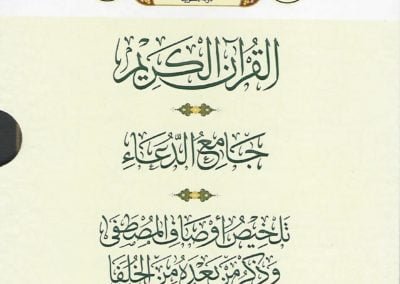 القُرآن الكَرِيم
جَامِعُ الدُّعَاءِ
تَلخِيصُ أوصَافِ المُصْطَفَى
وَذِكرُ مَن بَعدَهُ مِنَ الخُلَفَا